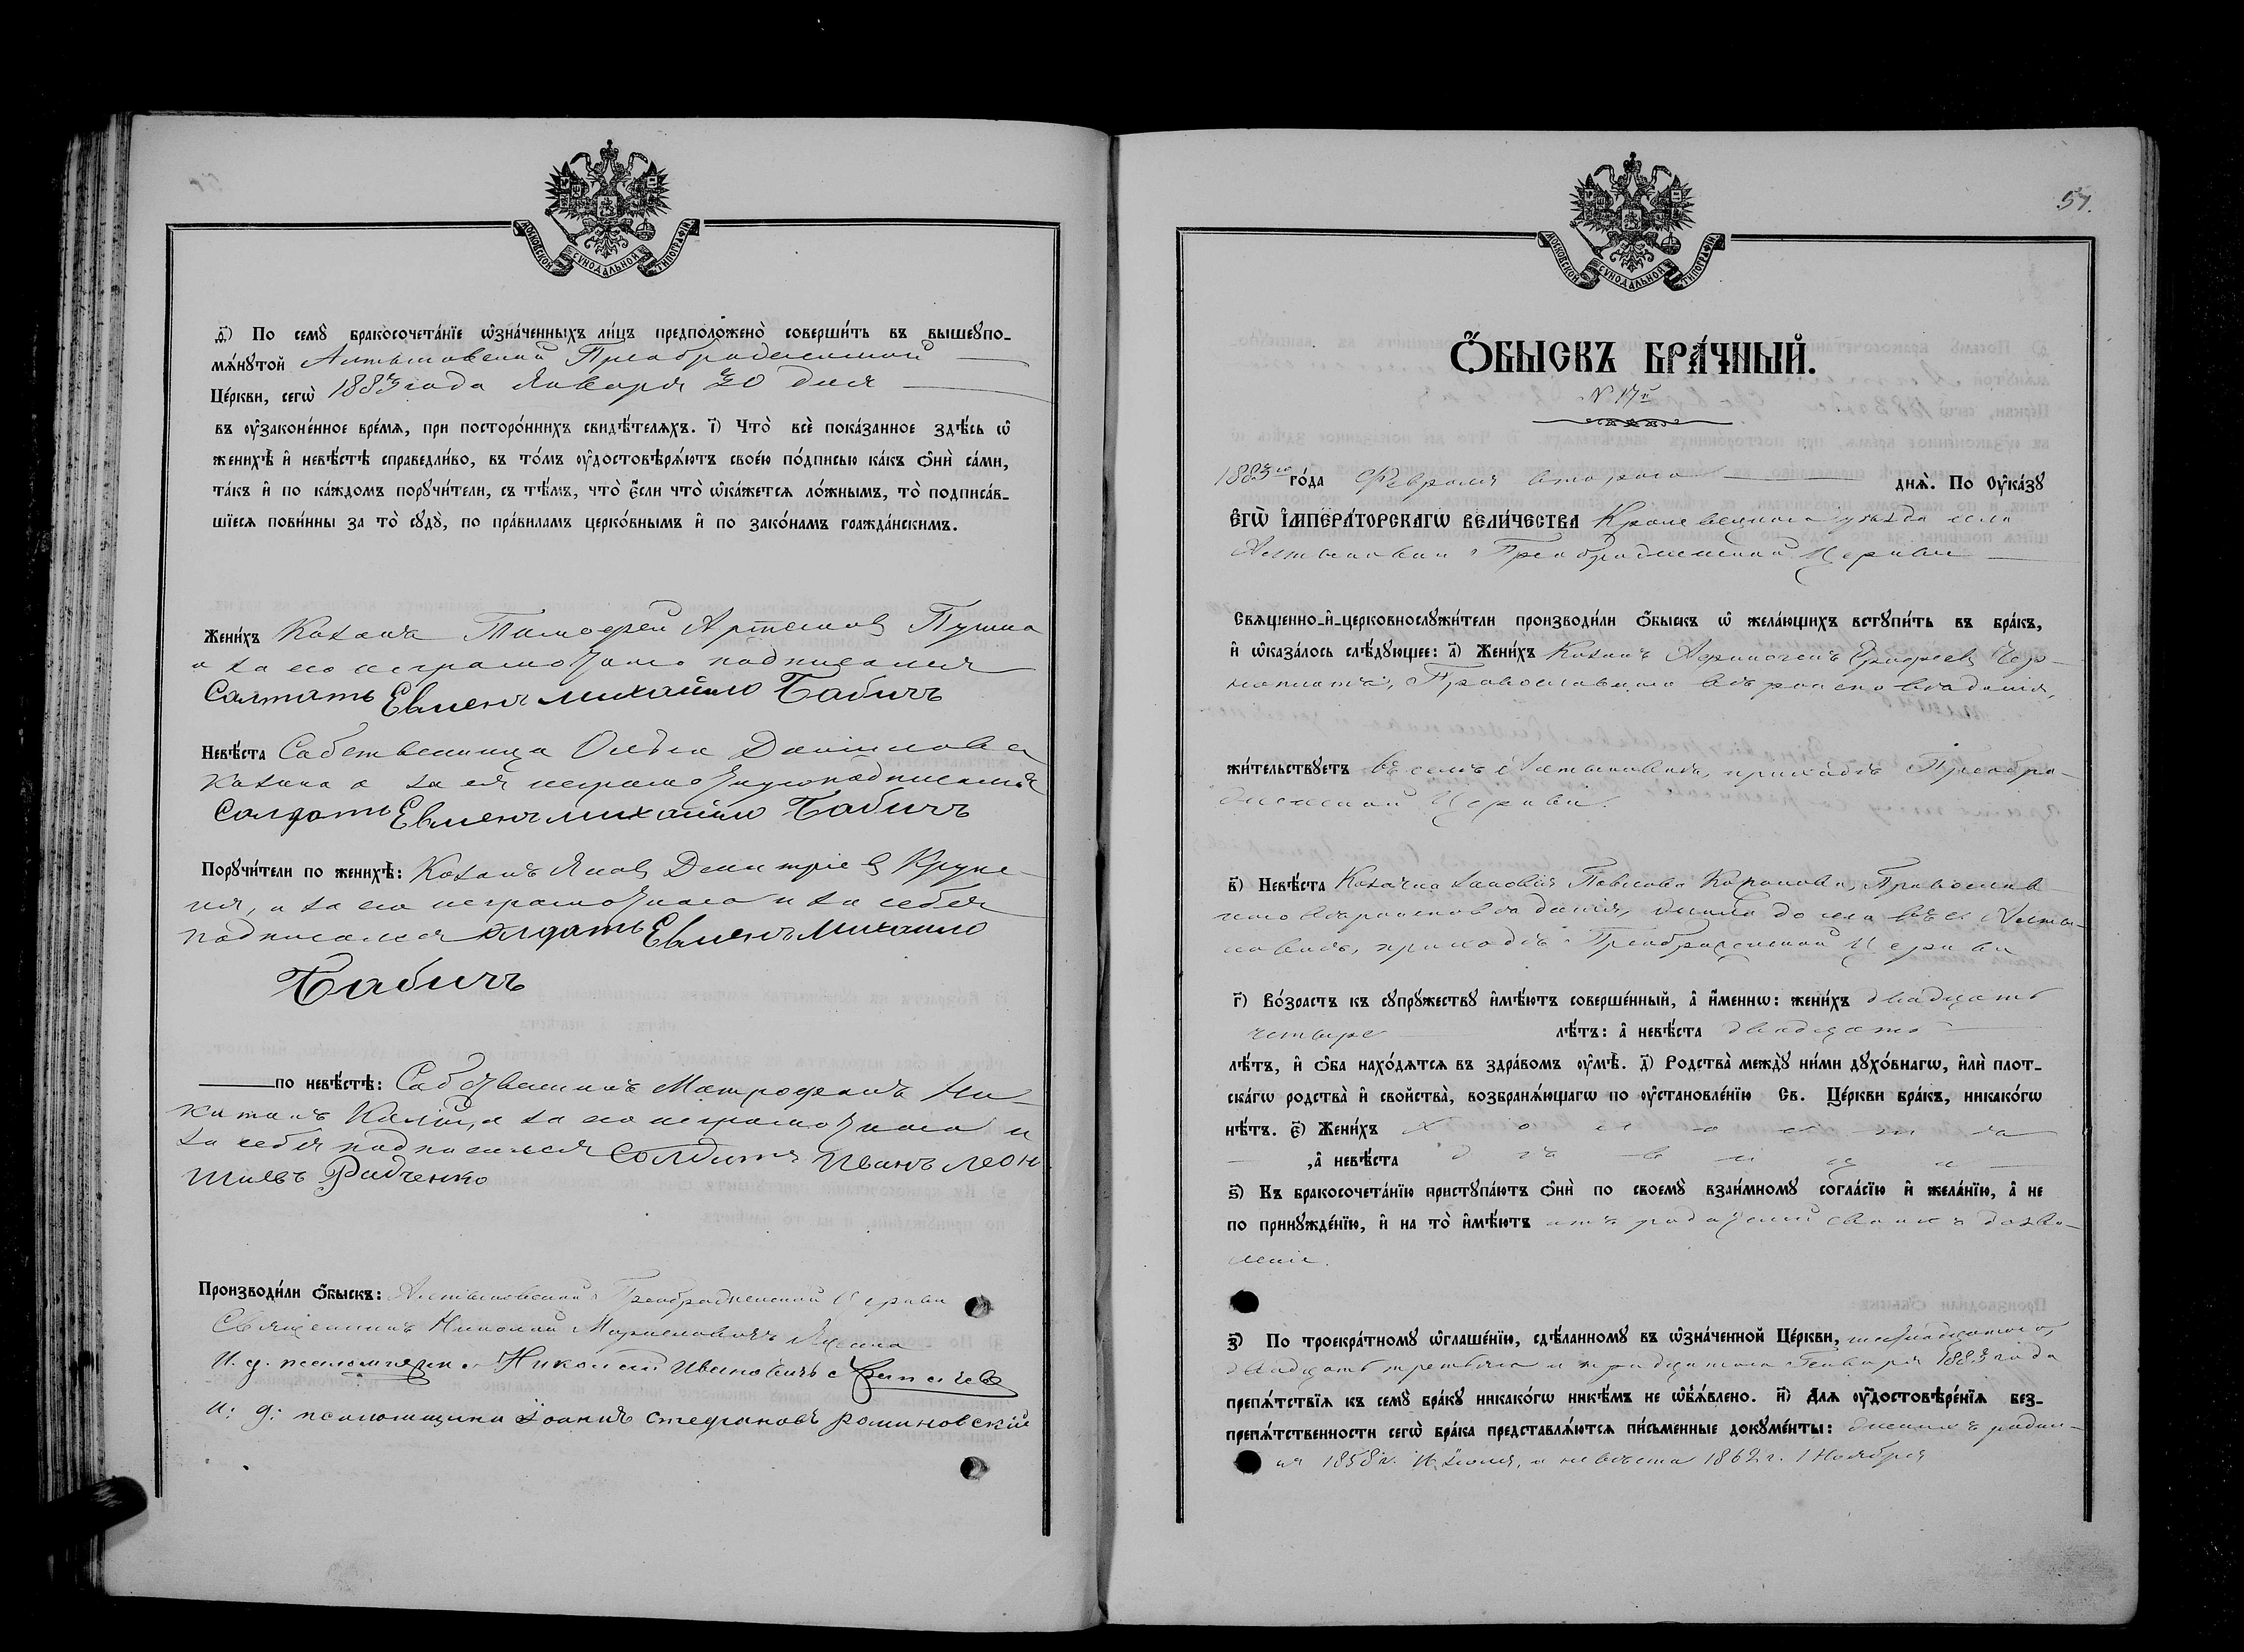 МОСКОВСКОЙ СѴНОДАЛЬНОЙ ТИПОГРАФІИ
ѳ҃) По семꙋ̀ бракосочета́нїе ѡ҆зна́ченныхъ ли́цъ предположено̀ соверши́ть въ вышеꙋпо-
мѧ́нꙋтой Алтыновской Преображенской
Це́ркви, сегѡ̀ 1883 года Января 30 дня
въ ѹ҆законе́нное вре́мѧ, при посторо́ннихъ свидѣ́телѧхъ. і҃) Что̀ всѐ пока́занное здѣ́сь ѡ҆
женихѣ̀ и҆ невѣ́стѣ справедли́во, въ то́мъ ѹ҆достовѣрѧ́ютъ свое́ю по́дписью ка́къ ѻ҆нѝ са́ми,
та́къ и҆ по ка́ждомъ порꙋчи́тели, съ тѣ́мъ, что̀ є҆́сли что̀ ѡ҆ка́жетсѧ ло́жнымъ, то̀ подписа́в-
шїесѧ пови́нны за то̀ сꙋдꙋ̀, по пра́виламъ церко́внымъ и҆ по зако́намъ гражда́нскимъ.
Жени́хъ Козакъ Тимофей Артемов
а за его неграмотного подписался
Салтатъ Евменъ михайло Бабичъ
Невѣ́ста Собственница Ольга Данилова
а за ея неграмотную подписался
Салдатъ Евменъ михайло Бабичъ
Порꙋчи́тели по женихѣ̀: Козакъ Яков Димитріев
а за его неграмотного и за себя
подписался салдатъ Евменъ Михаило
Бабичъ
по невѣ́стѣ: Собственникъ Митрофанъ Ни
а за его неграмотного и
за себя подписался Солдатъ Иванъ Леон
тиевъ Радченко
Производи́ли ѻ҆́быскъ: Алтыновской Преображенской Церкви
Священникъ Николай
И. д. псаломщика Николай Ивановичъ
и: д: псаломщика Іоаннъ Стефановъ Романовскій
57.
МОСКОВСКОЙ СѴНОДАЛЬНОЙ ТИПОГРАФІИ
Ѻ҆́БЫСКЪ БРА́ЧНЫЙ.
№ 17й
1883го го́да Февраля второго днѧ̀. По Оу҆ка́зꙋ
Е҆ГѠ̀ И҆МПЕРА́ТОРСКАГѠ ВЕЛИ́ЧЕСТВА Кролевецкого уезда села
Алтыновки Преображенской Церкви
Свѧще́нно-и҆-церковнослꙋжи́тели производи́ли ѻ҆́быскъ ѡ҆ жела́ющихъ встꙋпи́ть въ бра́къ,
и҆ ѡ҆каза́лось слѣ́дꙋющее: а҃) Жени́хъ Козакъ
Православного вѣроисповѣданія,
жи́тельствꙋетъ въ селѣ Алтыновкѣ, приходѣ Преобра-
женской Церкви.
в҃) Невѣ́ста Козачка Зиновія Павлова Православ
ного вѣроисповѣданія, жила до села въ с. Алты-
новкѣ, приходѣ Преображенской Церкви
г҃) Во́зрастъ къ сꙋпрꙋ́жествꙋ и҆мѣ́ютъ соверше́нный, а҆ и҆́меннѡ: жени́хъ двадцать
четыре лѣ́тъ: а҆ невѣ́ста двадцать
лѣ́тъ, и҆ ѻ҆́ба нахо́дѧтсѧ въ здра́вомъ ѹ҆мѣ̀. д҃) Родства̀ междꙋ̀ ни́ми дꙋхо́внагѡ, и҆лѝ плот-
ска́гѡ родства̀ и҆ сво́йства̀, возбранѧ́ющагѡ по ѹ҆становле́нїю Св. Це́ркви бра́къ, никако́гѡ
нѣ́тъ. є҃) Жени́хъ холоста
,а҆ невѣ́ста дѣвица
ѕ҃) Къ бракосочета́нїю пристꙋпа́ютъ ѻ҆нѝ по своемꙋ̀ взаи́мномꙋ согла́сїю и҆ жела́нїю, а҆ не
по принꙋжде́нїю, и҆ на то̀ и҆мѣ́ютъ отъ родителей своихъ дозво-
леніе.
з҃) По троекра́тномꙋ ѡ҆глаше́нїю, сдѣ́ланномꙋ въ ѡ҆зна́ченной Це́ркви,
двадцать третьяго и тридцатого Генваря 1883 года
препѧ́тствїѧ къ семꙋ̀ бра́кꙋ никако́гѡ никѣ́мъ не ѡ҆б̾ѧ́влено. и҃) Длѧ ѹ҆достовѣре́нїѧ без-
препѧ́тственности сегѡ̀ бра́ка представлѧ́ютсѧ пи́сьменные докꙋме́нты: женихъ родил-
ся 1858 г. Июля, а невѣста 1862 г. 1 Ноября